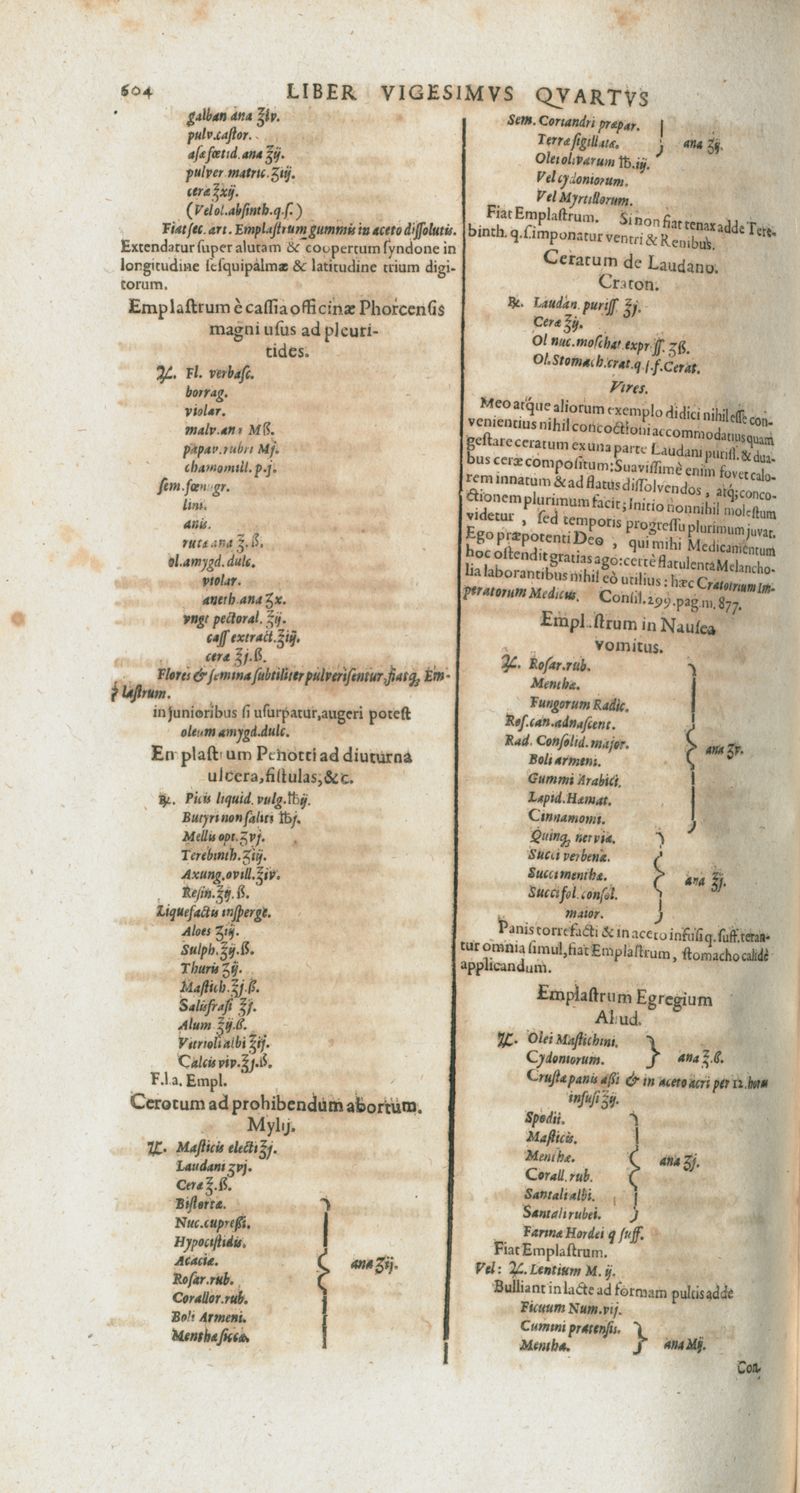 604 LIBER VIGESIMVS QVARTVS
galban ana ℥iv.
pulv.castor.
asæfœtid.ana ℥ij.
pulver matric.ʒiij.
ceræ ℥xij.
(Vel ol.absinth.q.s.)
Fiat sec. art. Emplastrum gummis in aceto dissolutis.
Extendatur super alutam & coopertum syndone in
longitudine sesquipalmæ & latitudine trium digi-
torum.
Emplastrum è cassia officinæ Phorcensis
magni usus ad pleuri-
tides.
℞. Fl. verbasc.
borrag.
violar.
malv.ana Mß.
papav.rubri Mj.
chamomill.p.j.
sem.fœnugr.
lini.
anis.
rutæ ana ℥.ß.
ol.amygd.dulc.
violar.
aneth.ana ʒx.
vngt pectoral. ℥ij.
cass extract.℥iij.
ceræ ℥j.ß.
Flores & semina subtiliter pulverisentur,fiatq; Em-
plastrum.
in junioribus si usurpatur,augeri potest
oleum amygd.dulc.
Emplastrum Penotti ad diuturna
ulcera,fistulas,&c.
℞. Picis liquid. vulg.℔ij.
Butyri non saliti ℔j.
Mellis opt.℥vj.
Terebinth.℥iij.
Axung.ovill.℥iv.
Resin.℥ij.ß.
Liquefactis insperge.
Aloes ℥iij.
Sulph.℥ij.ß.
Thuris ℥ij.
Mastich.℥j.ß.
Salisfrasi ℥j.
Alum ℥ij.ß.
Vitrioli albi ℥ij.
Calcis viv.℥j.ß.
F.l.a. Empl.
Cerotum ad prohibendum abortum.
Mylij.
℞. Mastic​is electi ℥j.
Laudani ʒvj.
Ceræ ℥.ß.
Bistortæ.
Nuc.cupressi.
Hypocistidis.
Acaciæ. ana ʒij.
Rosar.rub.
Corallor.rub.
Boli Armeni.
Menthæ siccæ.
Sem. Coriandri præpar.
Terræ sigillatæ. ana ʒij.
Olei olivarum ℔.iij.
Vel cydoniorum.
Vel Myrtillorum.
Fiat Emplastrum. Si non fiat tenax adde Tere-
binth. q.s.imponatur ventri & Renibus.
Ceratum de Laudano.
Craton.
℞. Laudan. puriss. ℥j.
Ceræ ℥ij.
Ol nuc.moschat.expriss. ʒß.
Ol.Stomach.crat.q.s.f.Cerat.
Vires.
Meo atque aliorum exemplo didici nihil esse con-
venientius nihil concoctioni accommodatius quam
gestare ceratum ex una parte Laudani puriss. & dua-
bus ceræ compositum: Suavissimè enim fovet calo-
rem innatum & ad flatus dissolvendos, atq; conco-
ctionem plurimum facit; Initio nonnihil molestum
videtur, sed temporis progressu plurimum juvat.
Ego præpotenti Deo, qui mihi Medicamentum
hoc ostendit gratias ago: certè flatulenta Melancho-
lia laborantibus nihil eò utilius: hæc Cratoinum Im-
peratorum Medicus. Consil.299.pag.m.877.
Emplastrum in Nausea
vomitus.
℞. Rosar.rub.
Menthæ.
Fungorum Radic.
Ros.can.adnascent.
Rad. Consolid.major. ana ʒv.
Boli armeni.
Gummi Arabici.
Lapid.Hæmat.
Cinnamomi.
Quinq; nervia.
Succi verbenæ.
Succi menthæ. ana ℥j.
Succi fol.consol.
maior.
Panis torrefacti & in aceto infusi q.suff.teran-
tur omnia simul,fiat Emplastrum, stomacho calidè
applicandum.
Emplastrum Egregium
Aliud.
℞. Olei Mastichini.
Cydoniorum. ana ℥.ß.
Crustæ panis assi & in aceto acri per 12.horas
infusi ℥ij.
Spodii.
Masticis.
Menthæ. ana ℥j.
Corall.rub.
Santali albi.
Santali rubei.
Farinæ Hordei q suff.
Fiat Emplastrum.
Vel: ℞. Lentium M. ij.
Bulliant in lacte ad formam pultis adde
Ficuum Num.vij.
Cumini pratensis.
Menthæ. ana Mij.
Con